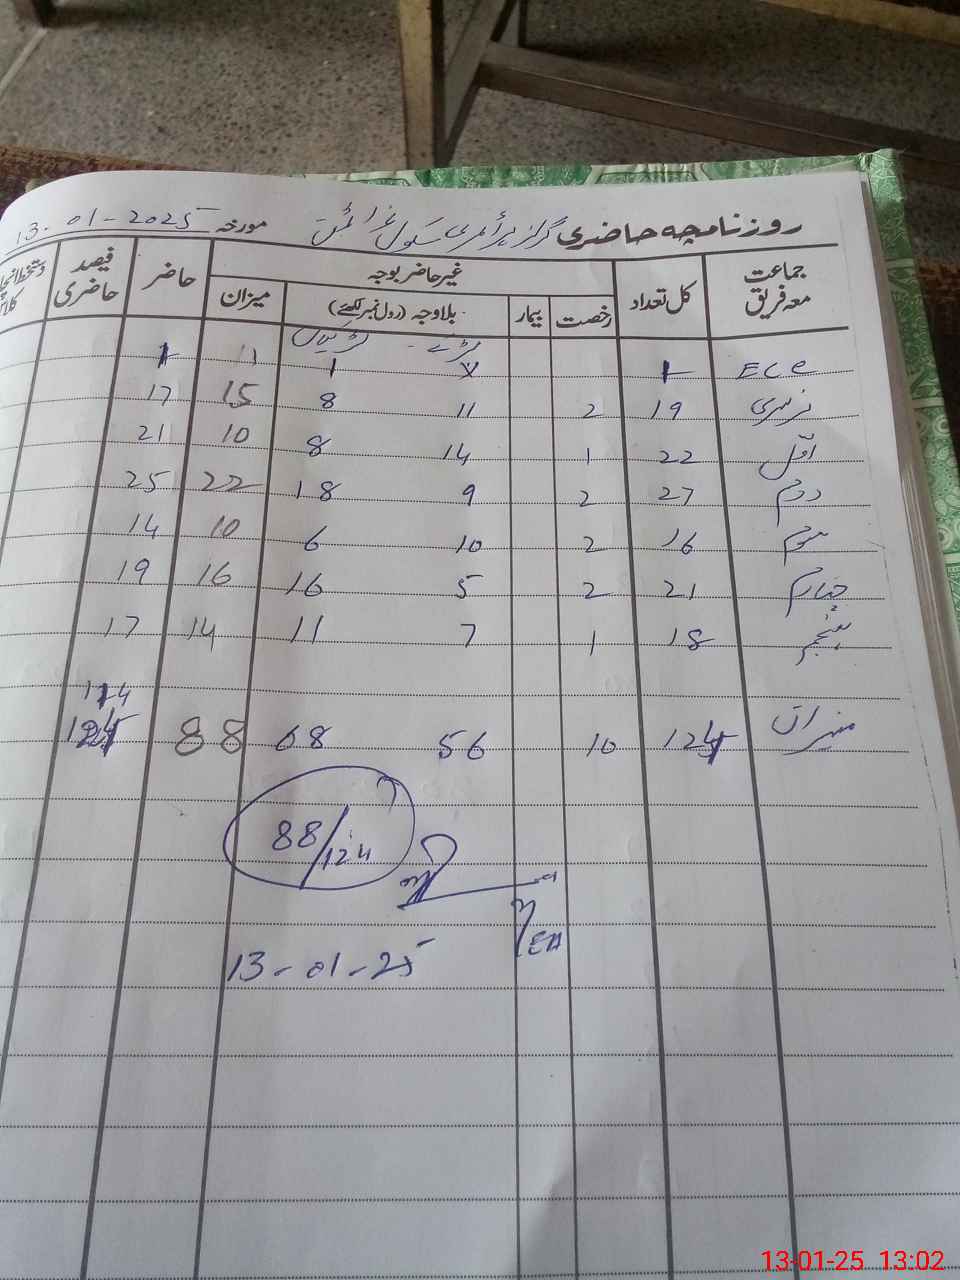 روزنامچہ حاضری گرلز پرائمری سکول مورخہ 13-01-2025
جماعت معہ فریق کل تعداد غیر حاضر بوجہ حاضر فیصد حاضری
رخصت بیمار بلاوجہ (رول نمبر لکھئے) میزان
ECE 1 1 11
نرسری 19 2 11 8 15 17
اوّل 22 1 14 8 10 21
دوم 27 2 9 18 22 25
سوم 16 2 10 6 10 14
چہارم 21 2 5 16 16 19
پنجم 18 1 7 11 14 17
114
میزان 124 10 56 68 88
88/124
13-01-25
13-01-25 13:02